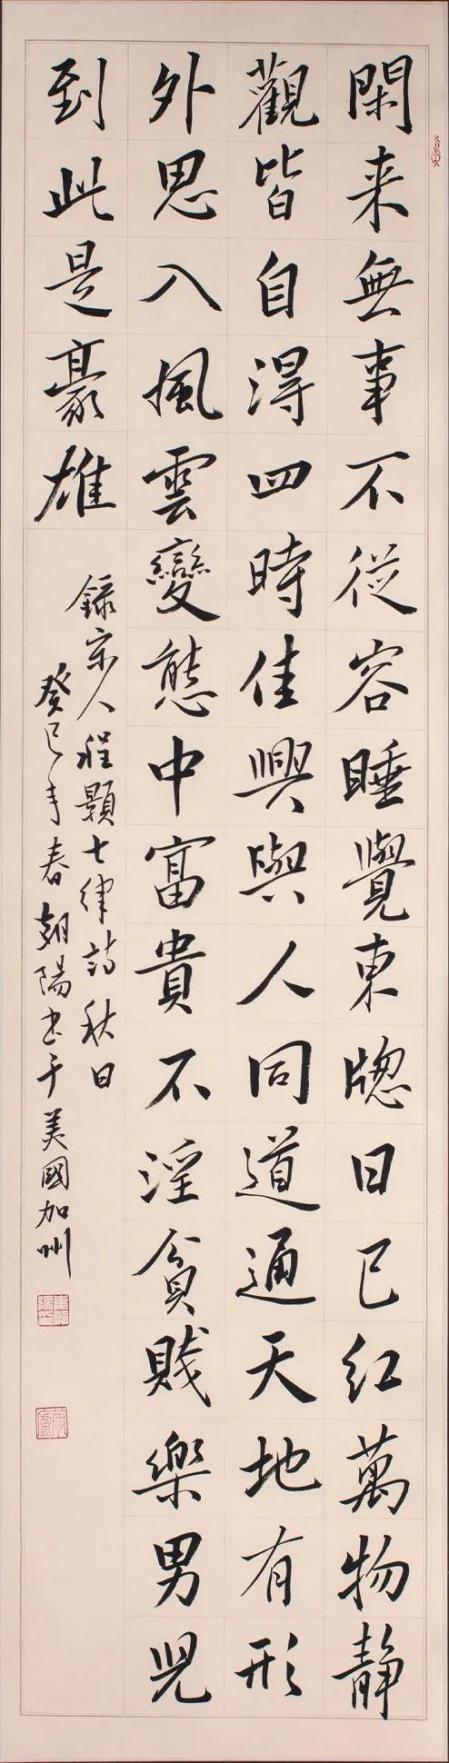 閑来無事不從容睡覺東牕日已红萬物静
觀皆自得四時佳興與人同道通天地有形
外思入風雲變態中富貴不淫貧賤樂男児
到此是豪雄
錄宋人程顥七律詩秋日
癸巳年春朝陽书于美國加州